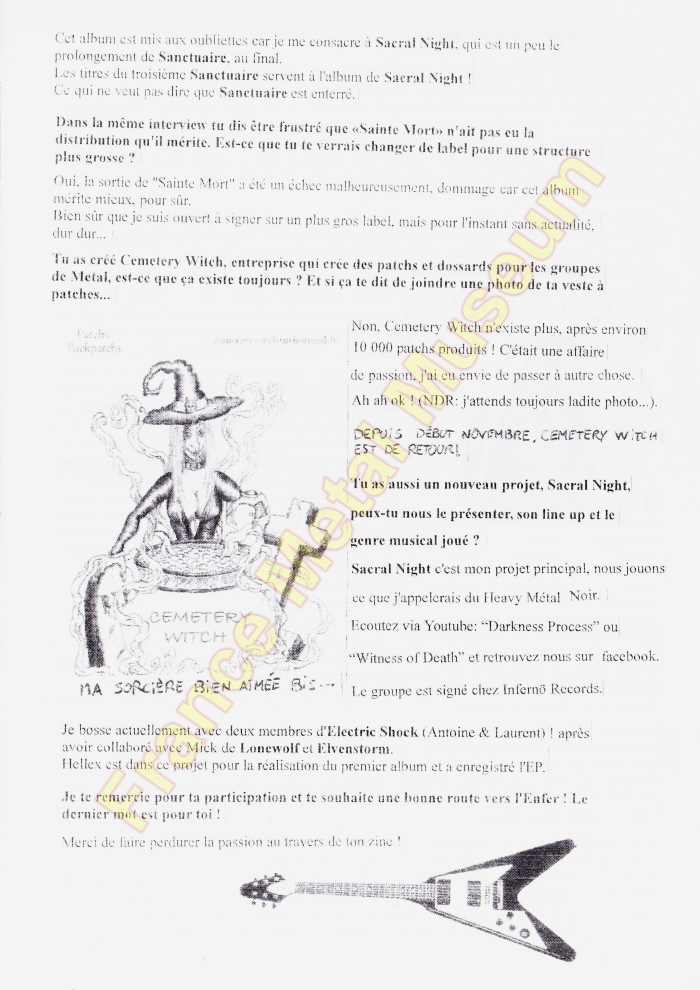 Cet album est mis aux oubliettes car je me consacre à Sacral Night, qui est un peu le
prolongement de Sanctuaire, au final.
Les titres du troisième Sanctuaire servent à l'album de Sacral Night !
Ce qui ne veut pas dire que Sanctuaire est enterré.
Dans la même interview tu dis être frustré que «Sainte Mort» n'ait pas eu la
distribution qu'il mérite. Est-ce que tu te verrais changer de label pour une structure
plus grosse ?
Oui, la sortie de "Sainte Mort" a été un échec malheureusement, dommage car cet album
mérite mieux, pour sûr.
Bien sûr que je suis ouvert à signer sur un plus gros label, mais pour l'instant sans actualité,
dur dur...
Tu as créé Cemetery Witch, entreprise qui crée des patchs et dossards pour les groupes
de Metal, est-ce que ça existe toujours ? Et si ça te dit de joindre une photo de ta veste à
patches...
Patchs
Backpatchs
Non, Cemetery Witch n'existe plus, après environ
10 000 patchs produits ! C'était une affaire
de passion, j'ai eu envie de passer à autre chose.
Ah ah ok ! (NDR: j'attends toujours ladite photo...).
DEPUIS DÉBUT NOVEMBRE, CEMETERY WITCH
EST DE RETOUR!
Tu as aussi un nouveau projet, Sacral Night,
peux-tu nous le présenter, son line up et le
genre musical joué ?
Sacral Night c'est mon projet principal, nous jouons
ce que j'appelerais du Heavy Métal Noir.
Ecoutez via Youtube: “Darkness Process” ou
“Witness of Death” et retrouvez nous sur facebook.
Le groupe est signé chez Infernö Records.
CEMETERY
WITCH
MA SORCIÈRE BIEN AIMÉE BIS...
Je bosse actuellement avec deux membres d'Electric Shock (Antoine & Laurent) ! après
avoir collaboré avec Mick de Lonewolf et Elvenstorm.
Hellex est dans ce projet pour la réalisation du premier album et a enregistré l'EP.
Je te remercie pour ta participation et te souhaite une bonne route vers l'Enfer ! Le
dernier mot est pour toi !
Merci de faire perdurer la passion au travers de ton zine !
France Metal Museum